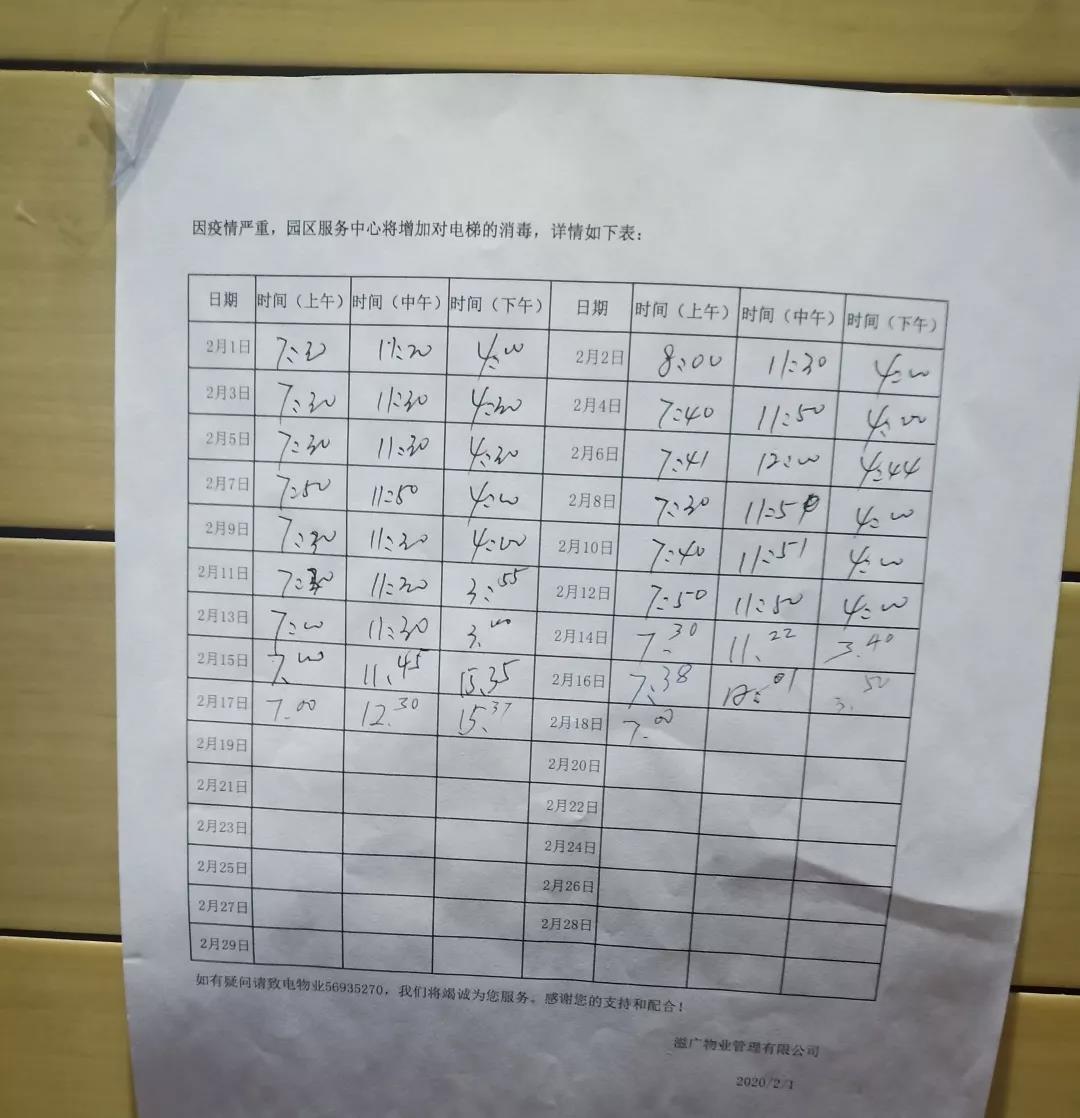 因疫情严重，园区服务中心将增加对电梯的消毒，详情如下表：
日期 时间（上午） 时间（中午） 时间（下午） 日期 时间（上午） 时间（中午） 时间（下午）
2月1日 7:30 11:30 4:00 2月2日 8:00 11:30 4:00
2月3日 7:30 11:30 4:30 2月4日 7:40 11:50 4:00
2月5日 7:30 11:30 4:30 2月6日 7:41 12:00 4:44
2月7日 7:50 11:50 4:00 2月8日 7:30 11:5 4:00
2月9日 7:30 11:30 4:00 2月10日 7:40 11:51 4:00
2月11日 7:30 11:30 3:55 2月12日 7:50 11:50 4:00
2月13日 7:00 11:30 3.00 2月14日 7.30 11.22 3.40
2月15日 7.00 11.45 15.35 2月16日 7.38 12:01 3.50
2月17日 7.00 12.30 15.37 2月18日 7.00
2月19日 2月20日
2月21日 2月22日
2月23日 2月24日
2月25日 2月26日
2月27日 2月28日
2月29日
如有疑问请致电物业56935270，我们将竭诚为您服务。感谢您的支持和配合！
滋广物业管理有限公司
2020/2/1